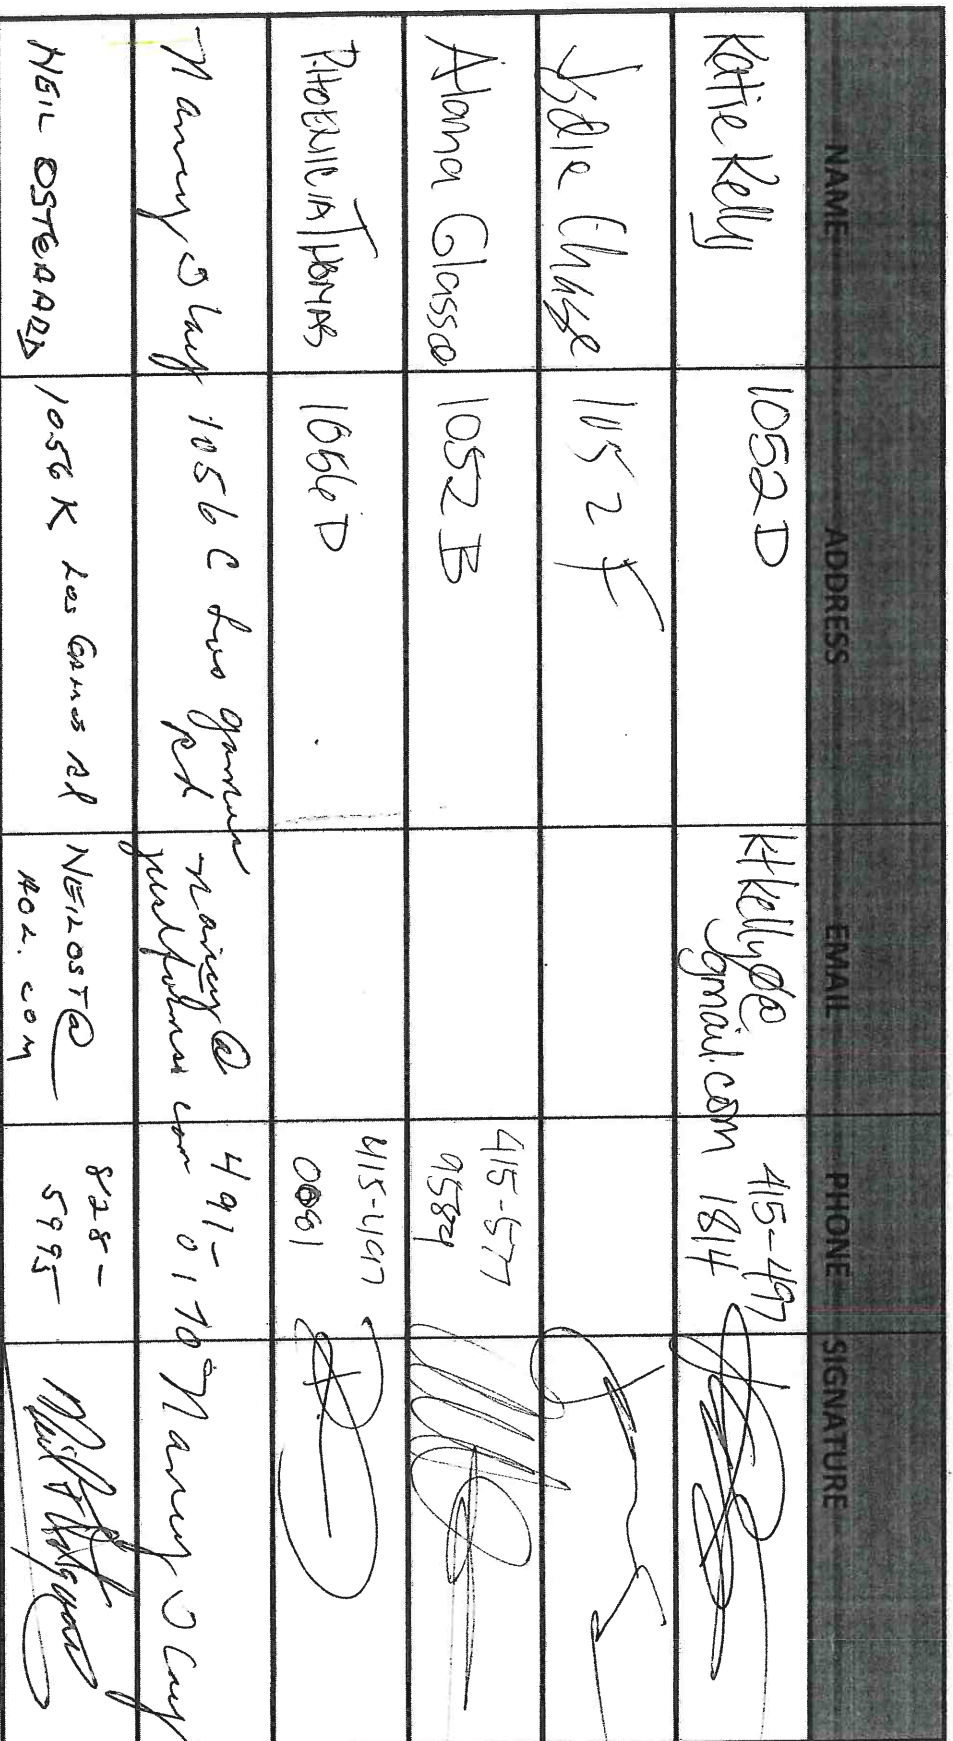 NAME ADDRESS EMAIL PHONE SIGNATURE
Katie Kelly 1052 D ktkellyd@ 415-497
gmail.com 1814
Jodie Chase 1052 F
Alanna Glassco 1052 B 415-577
9584
PHOENICIA THOMAS 1056 D 415-497
0081
Nancy 1056 C Los gamos nancy@ 491-
Rd .com 0170 Nancy
NEIL OSTGAARD 1056 K Los Gamos Rd NEILOST@ 828-
AOL.COM 5995